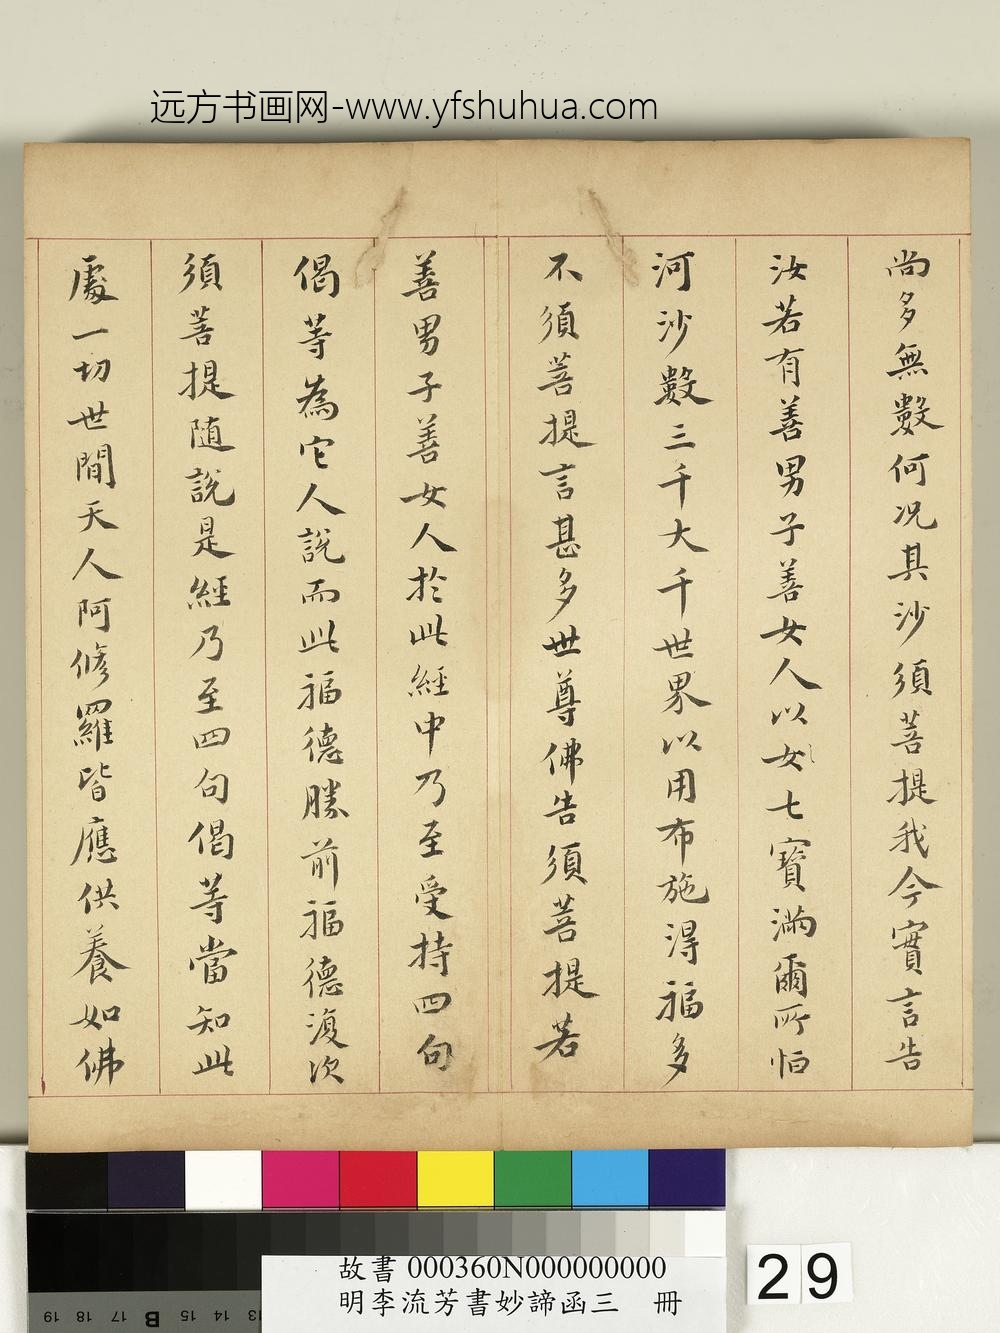 远方书画网-www.yfshuhua.com
尚多無數何况其沙須菩提我今實言告
汝若有善男子善女人以女七寶滿爾所恒
河沙數三千大千世界以用布施得福多
不須菩提言甚多世尊佛告須菩提若
善男子善女人於此經中乃至受持四句
偈等為它人說而此福德勝前福德復次
須菩提随說是經乃至四句偈等當知此
處一切世間天人阿修羅皆應供養如佛
故書 000360N000000000
明李流芳書妙諦函三 冊
29
19 18 17 B 15 14 13